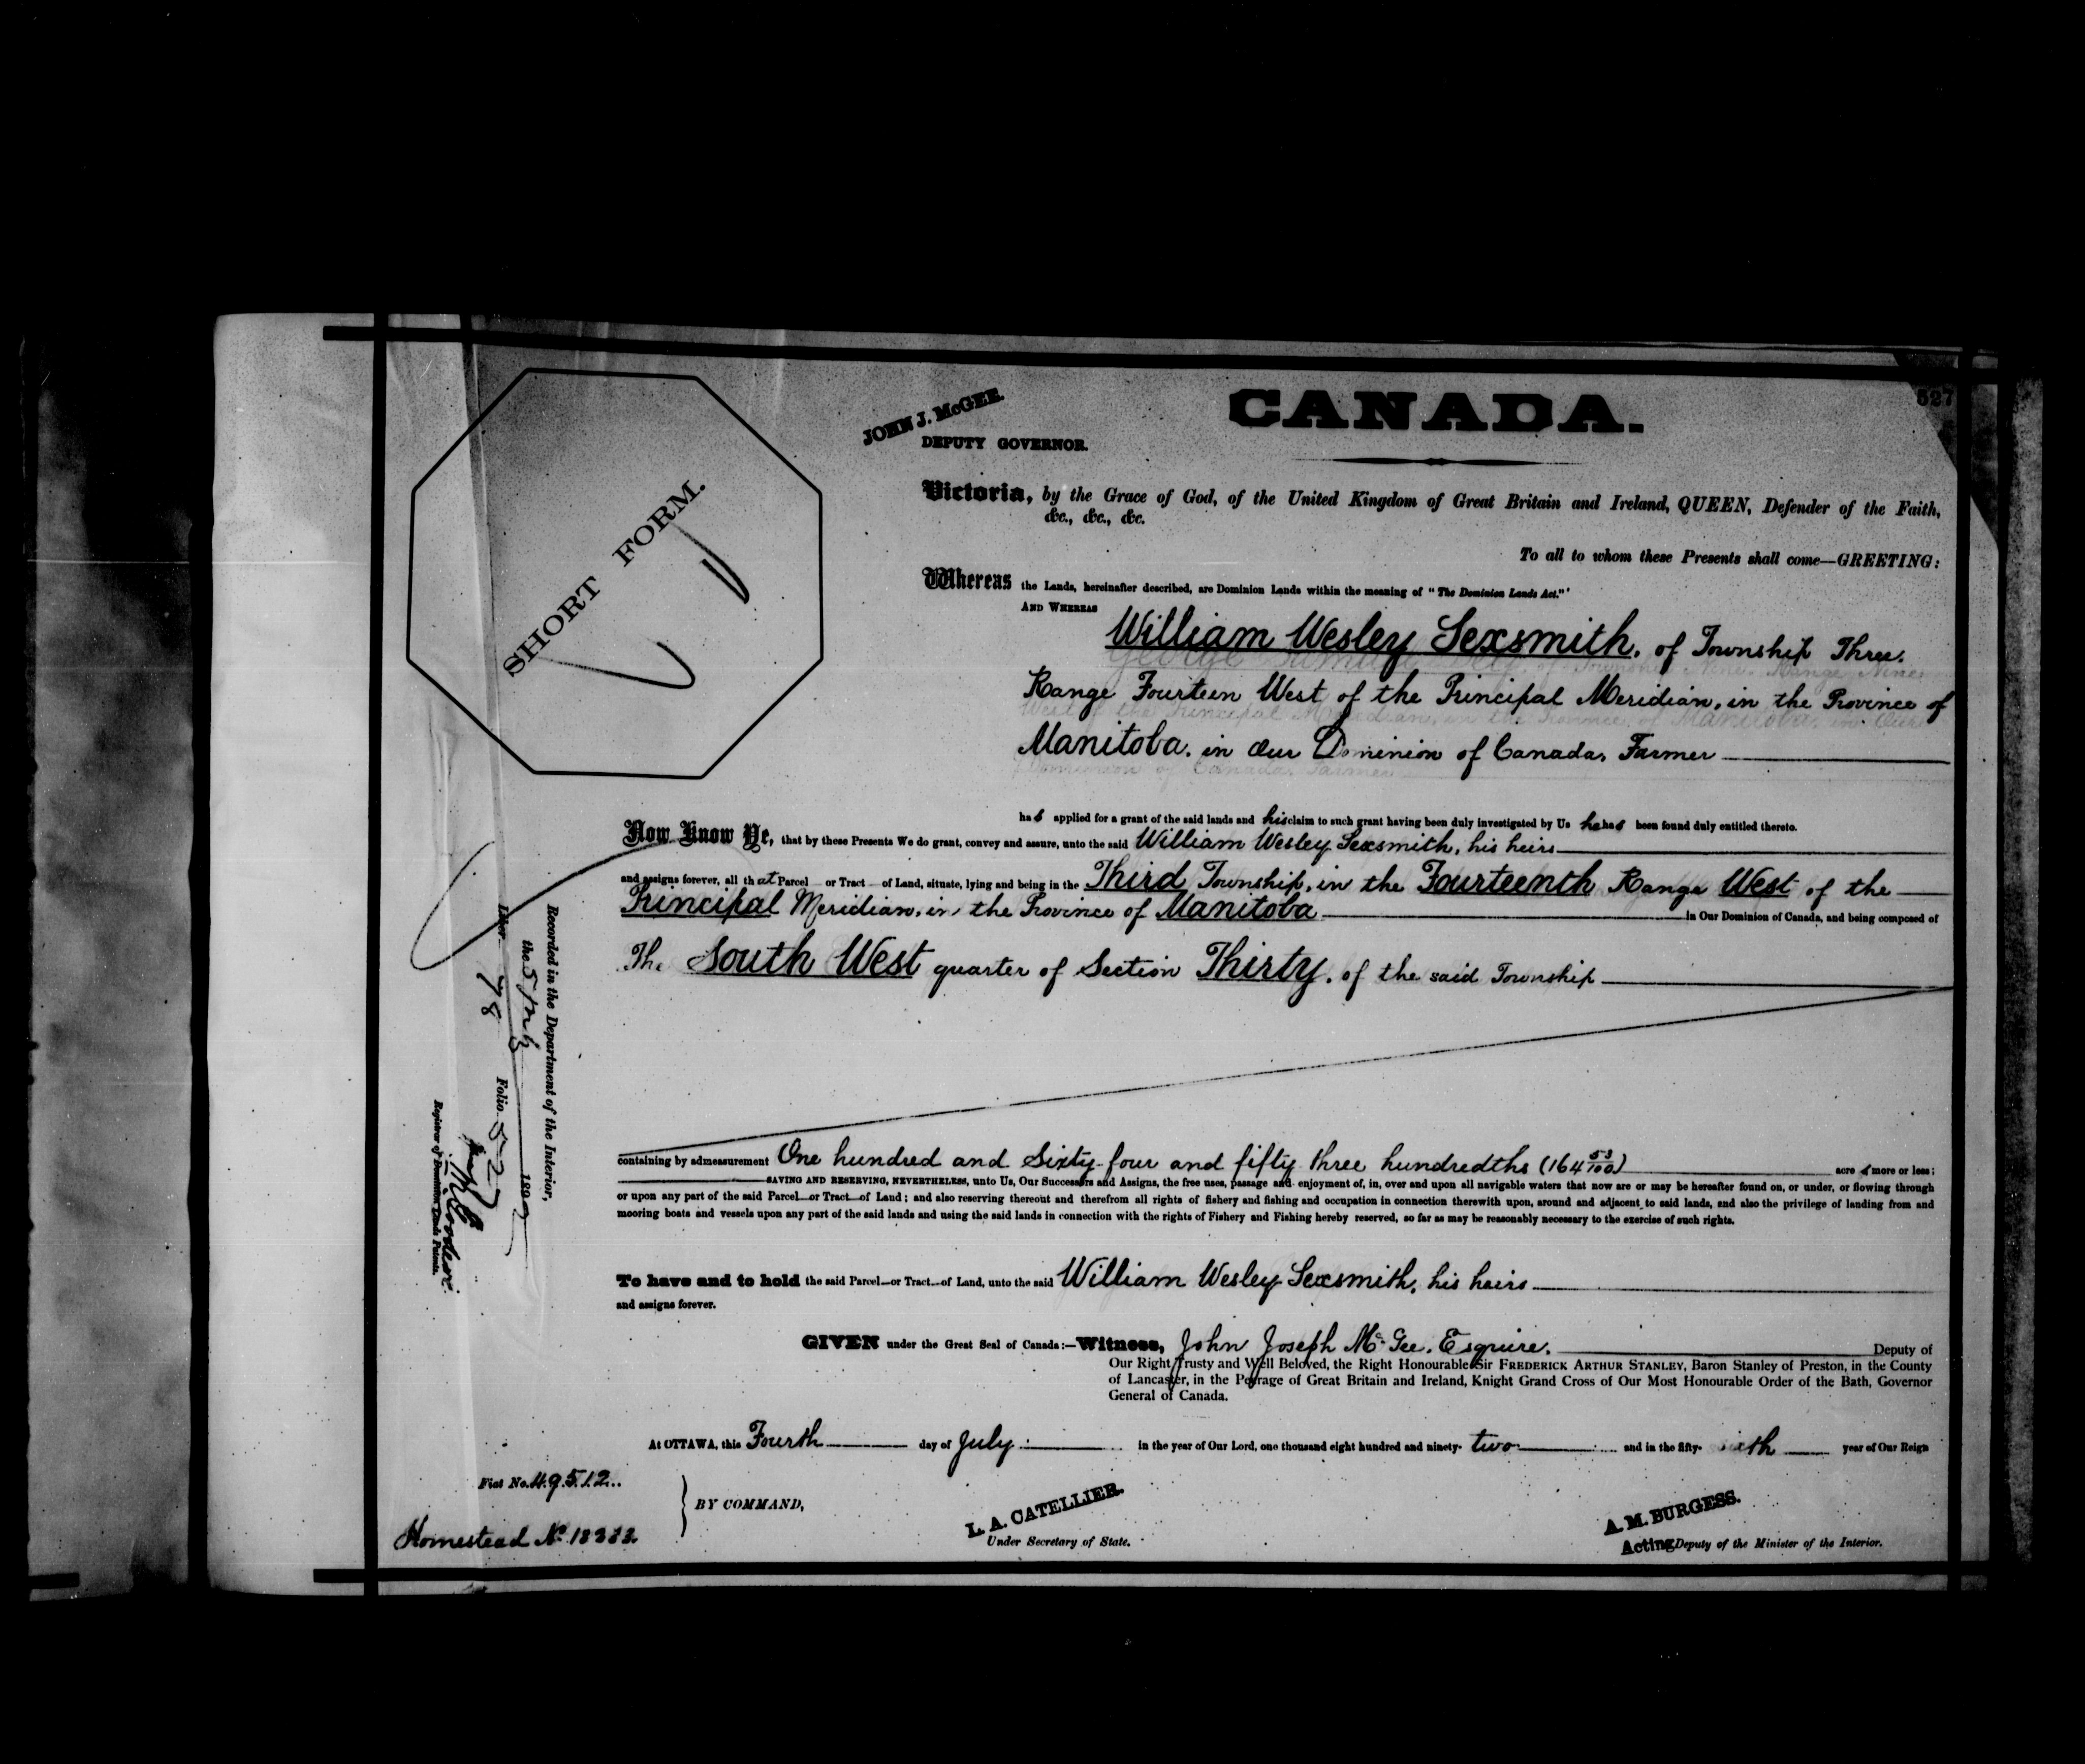 527
CANADA.
JOHN J. McGEE.
DEPUTY GOVERNOR.
SHORT FORM.
Victoria, by the Grace of God, of the United Kingdom of Great Britain and Ireland, QUEEN, Defender of the Faith,
&c., &c., &c.
To all to whom these Presents shall come—GREETING:
Whereas the Lands, hereinafter described, are Dominion Lands within the meaning of "The Dominion Lands Act."
AND WHEREAS
William Wesley Sexsmith, of Township Three,
Range Fourteen West of the Principal Meridian, in the Province of
Manitoba, in Our Dominion of Canada, Farmer
has applied for a grant of the said lands and his claim to such grant having been duly investigated by Us he has been found duly entitled thereto.
Now Know Ye, that by these Presents We do grant, convey and assure, unto the said William Wesley Sexsmith, his heirs
and assigns forever, all that Parcel or Tract of Land, situate, lying and being in the Third Township, in the Fourteenth Range West of the
Principal Meridian, in the Province of Manitoba in Our Dominion of Canada, and being composed of
The South West quarter of Section Thirty, of the said Township
containing by admeasurement One hundred and Sixty-four and fifty three hundredths (164 53/100) acres more or less;
SAVING AND RESERVING, NEVERTHELESS, unto Us, Our Successors and Assigns, the free uses, passage and enjoyment of, in, over and upon all navigable waters that now are or may be hereafter found on, or under, or flowing through
or upon any part of the said Parcel or Tract of Land; and also reserving thereout and therefrom all rights of fishery and fishing and occupation in connection therewith upon, around and adjacent to said lands, and also the privilege of landing from and
mooring boats and vessels upon any part of the said lands and using the said lands in connection with the rights of Fishery and Fishing hereby reserved, so far as may be reasonably necessary to the exercise of such rights.
To have and to hold the said Parcel or Tract of Land, unto the said William Wesley Sexsmith, his heirs
and assigns forever.
GIVEN under the Great Seal of Canada:—Witness, John Joseph McGee, Esquire, Deputy of
Our Right Trusty and Well Beloved, the Right Honourable Sir FREDERICK ARTHUR STANLEY, Baron Stanley of Preston, in the County
of Lancaster, in the Peerage of Great Britain and Ireland, Knight Grand Cross of Our Most Honourable Order of the Bath, Governor
General of Canada.
At OTTAWA, this Fourth day of July in the year of Our Lord, one thousand eight hundred and ninety-two and in the fifty-sixth year of Our Reign
Fiat No. 49512
BY COMMAND,
L. A. CATELLIER.
Under Secretary of State.
A. M. BURGESS.
Acting Deputy of the Minister of the Interior.
Homestead No
Recorded in the Department of the Interior,
the 5 1892
Liber 78 Folio 527
Registrar of Dominion Lands Patents.